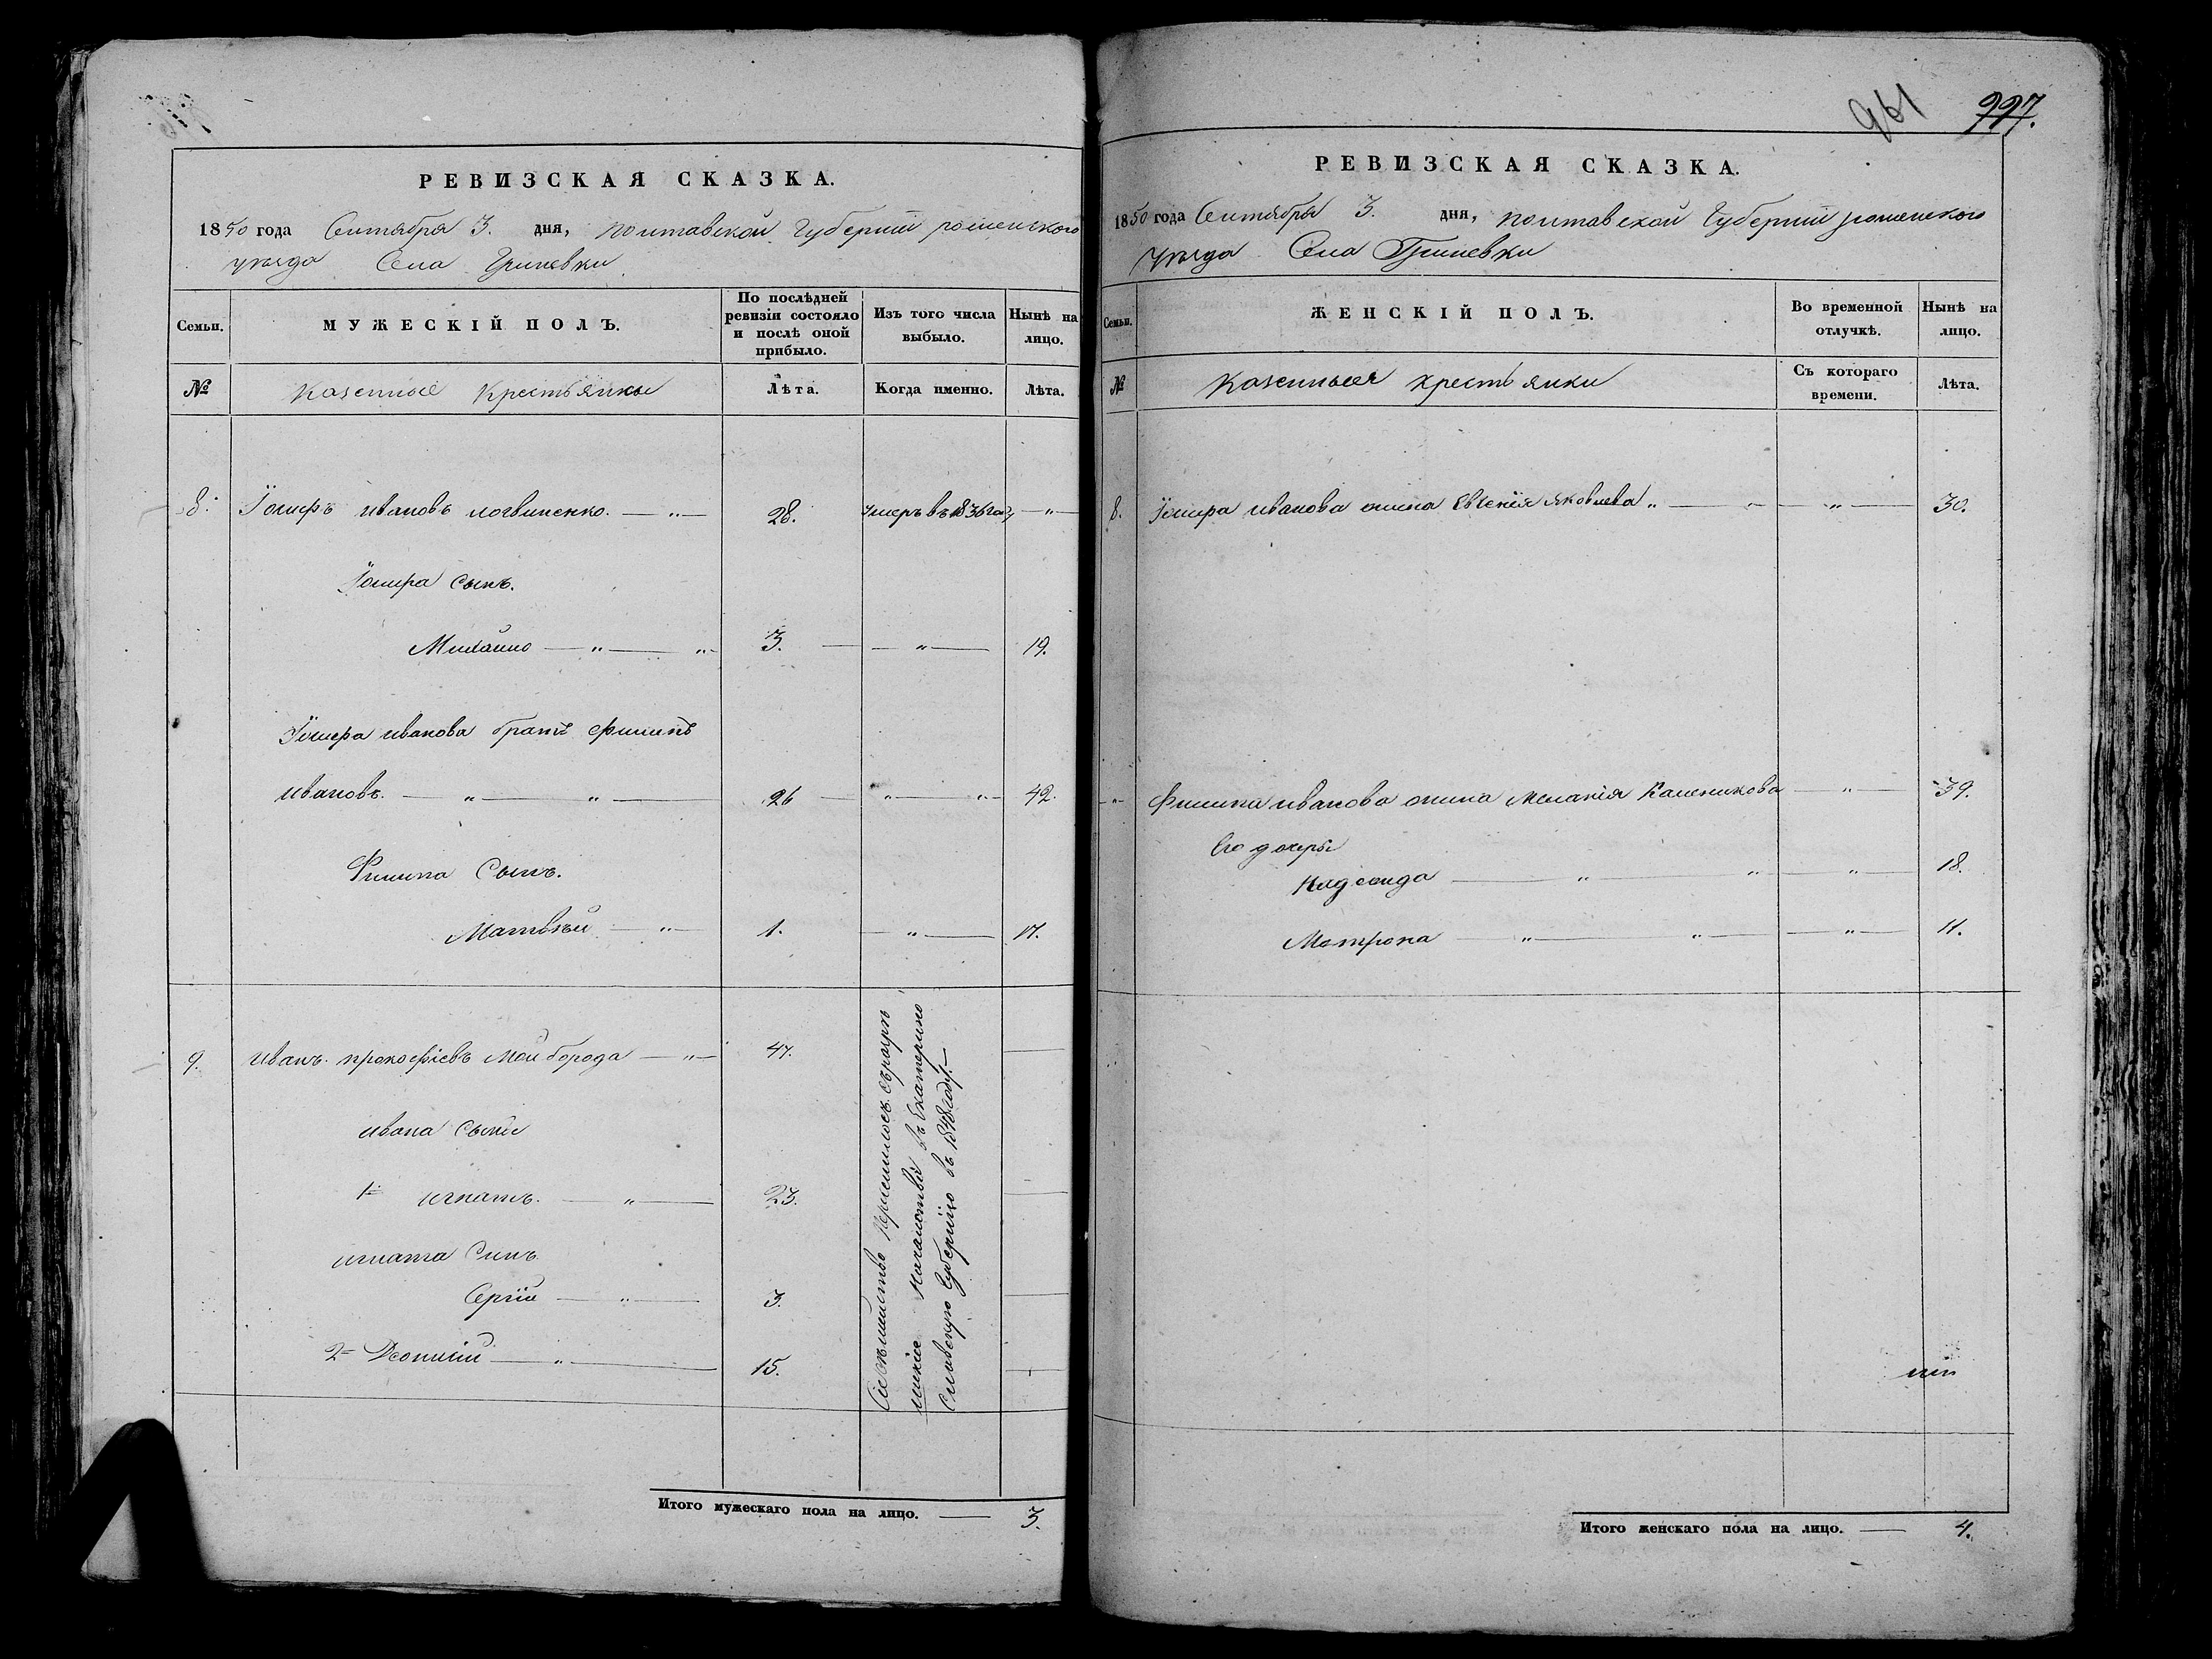 РЕВИЗСКАЯ СКАЗКА.
1850 года Сентября 3. дня, полтавской Губернии роменского
уезда Села Гриневки
Семьи. МУЖЕСКІЙ ПОЛЪ. По послѣдней ревизіи состояло и послѣ оной прибыло. Изъ того числа выбыло. Нынѣ на лицо.
№ Казенные Крестьяны Лѣта. Когда именно. Лѣта.
8. Іосифъ ивановъ логвиненко. — „ — 28. умеръ въ 1836 году — „ —
Іосифа сынъ.
Михайло — „ — „ 3. — „ — 19.
Іосифа иванова братъ филипъ
ивановъ. — „ — „ — 26 — „ — „ — 42.
Филипа Сынъ.
Матвѣй — „ — 1. — „ — 17.
9. иванъ прокофіевъ Мойборода — „ — 47. —
ивана Сыны
1й игнатъ. — „ — 23. —
игната Сынъ
Сергій — „ — 3. —
2й Деонисій — „ — 15. —
Сіе семѣйство переселилось съ разрѣ
шенія Начальства въ Екатерино
славскую Губернію въ 1848 году. —
Итого мужескаго пола на лицо. — 3.
961 997.
РЕВИЗСКАЯ СКАЗКА.
1850 года Сентября 3. дня, полтавской Губернии роменского
Уезда Села Гриневки
Семьи. ЖЕНСКІЙ ПОЛЪ. Во временной отлучкѣ. Нынѣ на лицо.
№ Казенныея крестьянки Съ котораго времени. Лѣта.
8. Іосифа иванова жина Евгенія яковлева „ — „ — „ — 30.
„ Филипа иванова жина Меланія Каленикова — „ — 39.
Его дочеры
Надежда — „ — „ — „ — 18.
Мотрона — „ — „ — „ — 11.
Итого женскаго пола на лицо. — 4.